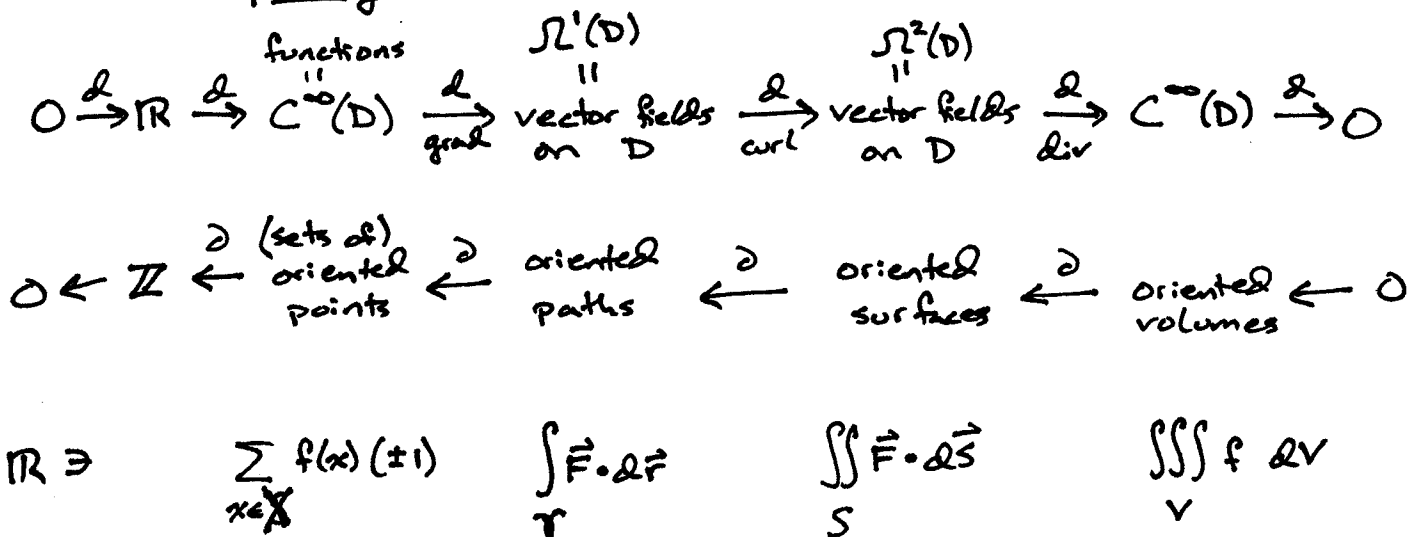 functions Ω¹(D) Ω²(D)
" " "
0 →d ℝ →d C^∞(D) →d grad vector fields on D →d curl vector fields on D →d div C^∞(D) →d 0
0 ← ℤ ←∂ (sets of) oriented points ←∂ oriented paths ←∂ oriented surfaces ←∂ oriented volumes ← 0
ℝ ∋ ∑_{x∈X} f(x)(±1) ∫_γ F⃗·dr⃗ ∬_S F⃗·dS⃗ ∭_V f dV